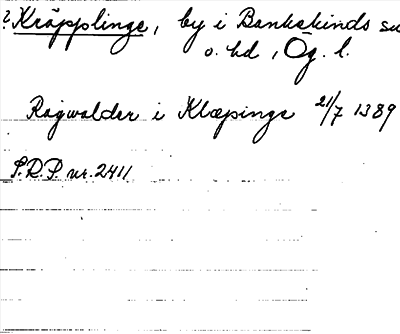 ? Kräpplinge, by i Bankekinds sn
o. hd, Ög. l.
Ragwalder i Klæpinge 21/7 1389
S.R.P. nr. 2411